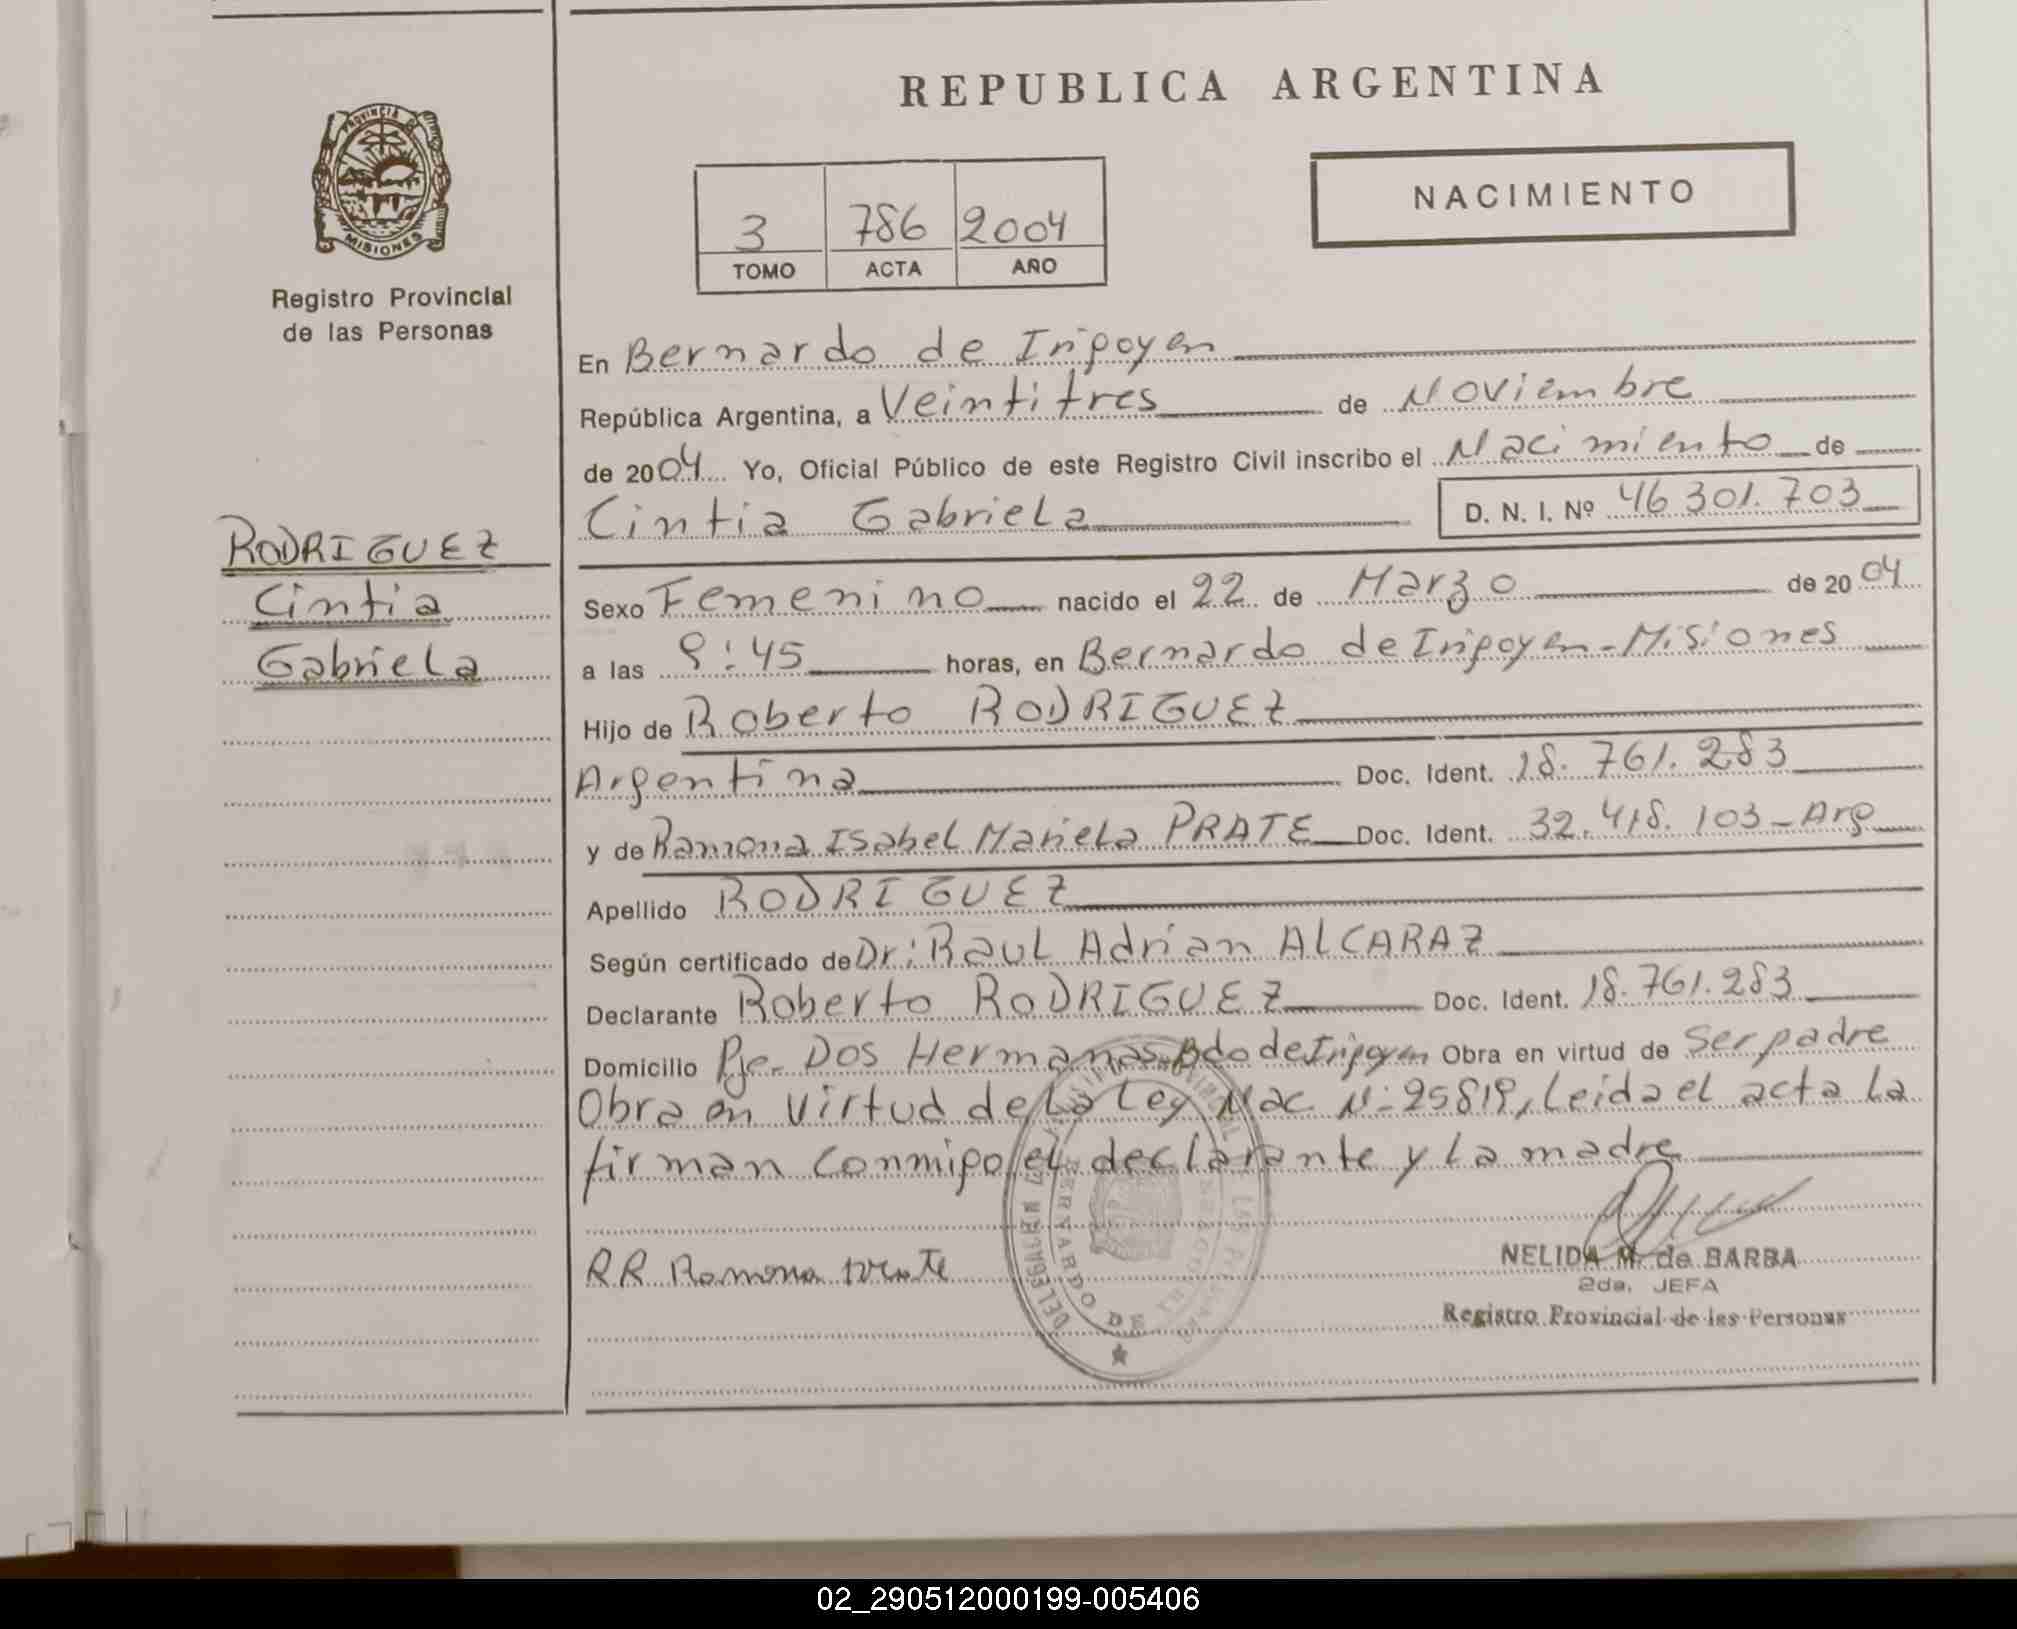 REPUBLICA ARGENTINA
PROVINCIA DE
MISIONES
Registro Provincial
de las Personas
NACIMIENTO
3 786 2004
TOMO ACTA AÑO
En Bernardo de Irigoyen
República Argentina, a Veintitres de Noviembre
de 2004 Yo, Oficial Público de este Registro Civil inscribo el Nacimiento de
Cintia Gabriela D. N. I. Nº 46 301. 703
RODRIGUEZ
Cintia
Gabriela
Sexo Femenino nacido el 22 de Marzo de 2004
a las 9:45 horas, en Bernardo de Irigoyen - Misiones
Hijo de Roberto RODRIGUEZ
Argentina Doc. Ident. 18. 761. 283
y de Ramona Isabel Mariela PRATE Doc. Ident. 32. 418. 103 - Arg
Apellido RODRIGUEZ
Según certificado de Dr: Raul Adrian ALCARAZ
Declarante Roberto RODRIGUEZ Doc. Ident. 18. 761. 283
Domicilio Pje. Dos Hermanas Bdo de Irigoyen Obra en virtud de Ser padre
Obra en Virtud de La Ley Nac N: 25819, Leida el acta La
firman conmigo el declarante y La madre
RR Ramona
NELIDA M. de BARBA
2da. JEFA
Registro Provincial de las Personas
DELEGACION
BERNARDO DE
02_290512000199-005406